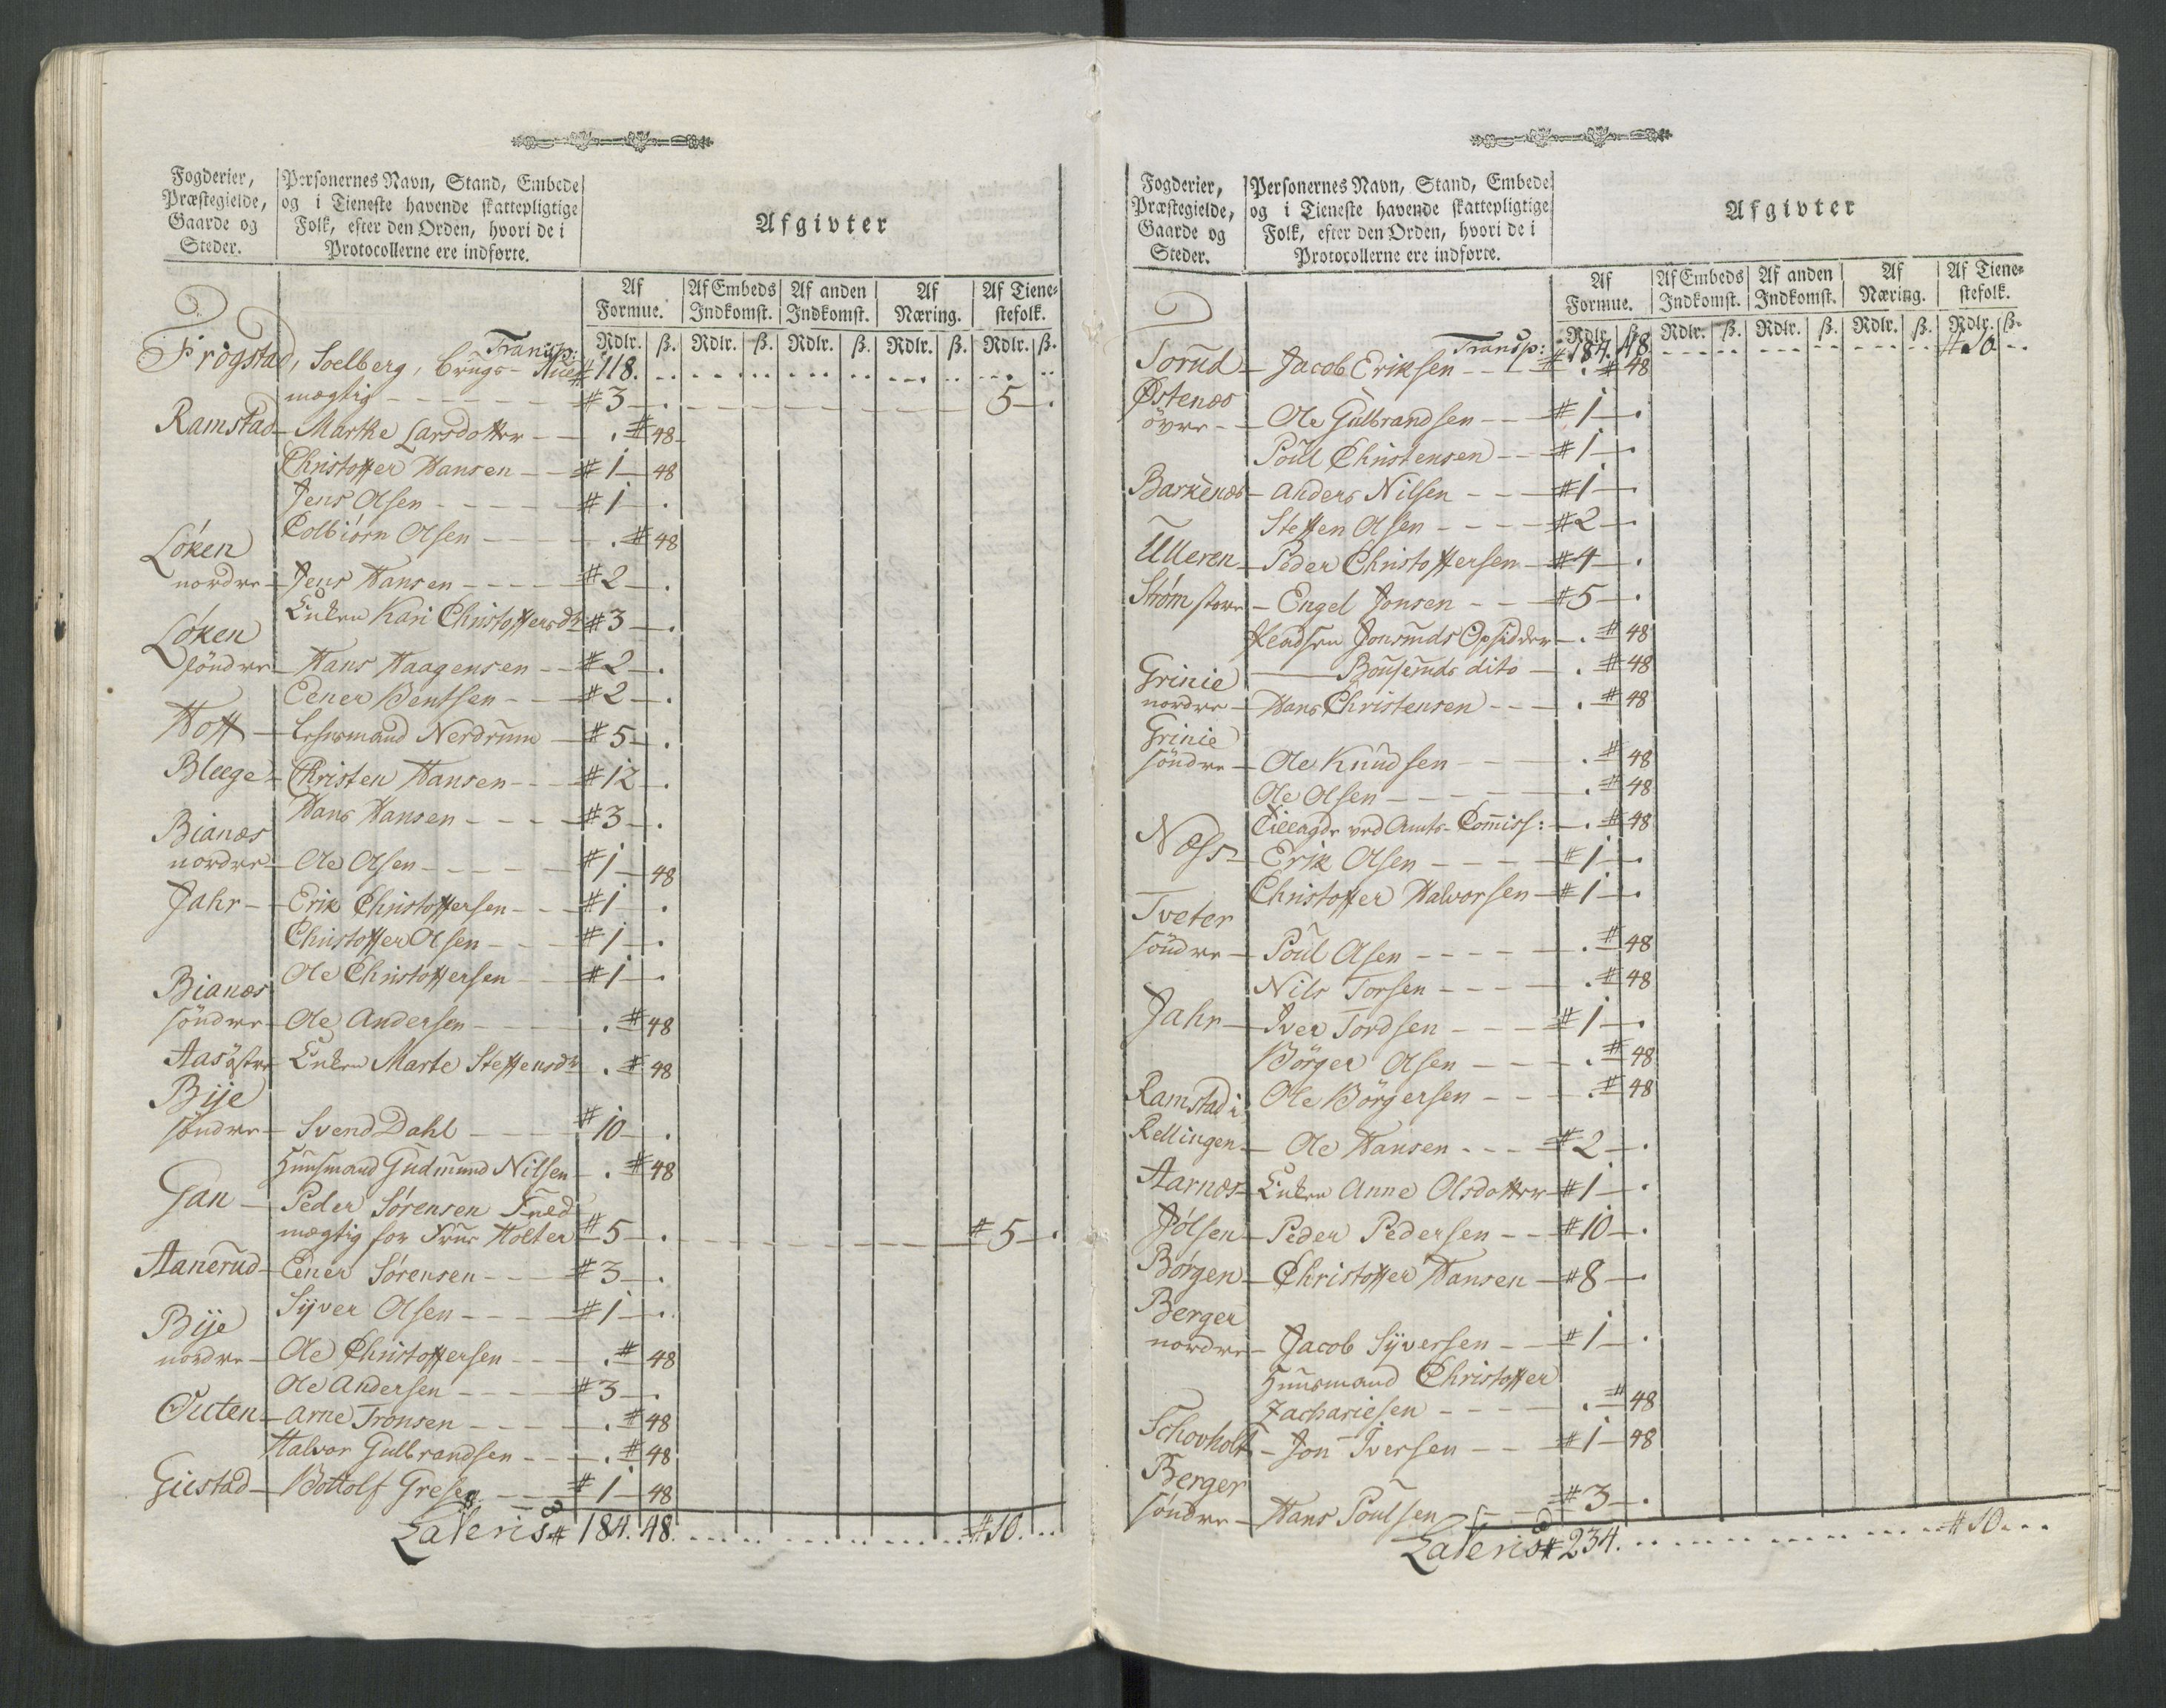 Fogderier,
Præstegielde,
Gaarde og
Steder.
Personernes Navn, Stand, Embede
og i Tieneste havende skattepligtige
Folk, efter den Orden, hvori de i
Protocollerne ere indførte.
Afgivter
Af Formue. Af Embeds Indkomst. Af anden Indkomst. Af Næring. Af Tienestefolk.
Rdlr. ß. Rdlr. ß. Rdlr. ß. Rdlr. ß. Rdlr. ß.
Transp: # 118.
Frogstad, Soelberg, Brugs-
mægtig # 3 . 5 .
Ramstad Marthe Larsdotter . # 48
Christoffer Hansen # 1 48
Jens Olsen # 1 .
Colbiörn Olsen . # 48
Löken
nordre Jens Hansen # 2 .
Enken Kari Christoffersdr # 3 .
Löken
söndre Hans Haagensen # 2 .
Eener Bentsen # 2 .
Hoff Lehnsmand Nerdrum # 5 .
Bleege Christen Hansen # 12 .
Hans Hansen # 3 .
Bianæs
nordre Ole Olsen # 1 48
Jahr Erik Christoffersen # 1 .
Christoffer Olsen # 1 .
Ole Christoffersen # 1 .
Bianæs
söndre Ole Andersen . # 48
Aas östre Enken Marte Steffensdr . # 48
Bije
söndre Svend Dahl # 10 .
Huusmand Gudmund Nilsen . # 48
Gan Peder Sörensen Fuld
mægtig for Frue Holter # 5 . # 5 .
Aanerud Eener Sörensen # 3 .
Syver Olsen # 1 .
Bije
nordre Ole Christoffersen . # 48
Ole Andersen # 3 .
Outen Arne Tronsen . # 48
Halvor Gulbrandsen . # 48
Giestad Bottolf # 1 48
Lateris # 184. 48. # 10.
Fogderier,
Præstegielde,
Gaarde og
Steder.
Personernes Navn, Stand, Embede
og i Tieneste havende skattepligtige
Folk, efter den Orden, hvori de i
Protocollerne ere indførte.
Afgivter
Af Formue. Af Embeds Indkomst. Af anden Indkomst. Af Næring. Af Tienestefolk.
Rdlr. ß. Rdlr. ß. Rdlr. ß. Rdlr. ß. Rdlr. ß.
Transp: # 184. 48 # 10
Torud Jacob Eriksen . # 48
Østenæs
övre Ole Gulbrandsen # 1 .
Poul Christensen # 1 .
Barkenæs Anders Nilsen # 1 .
Steffen Olsen # 2 .
Ulleren Peder Christoffersen # 4 .
Ström store Engel Jonsen # 5 .
Pladsen Jonsruds Opsidder . # 48
dito . # 48
Grinie
nordre Hans Christensen . # 48
Grinie
söndre Ole Knudsen . # 48
Ole Olsen . # 48
Tillagde ved Amts-Com̅iss: . # 48
Næss Erik Olsen # 1 .
Christoffer Halvorsen # 1 .
Tveter
söndre Poul Olsen . # 48
Nils Torsen . # 48
Jahr Iver Tordsen # 1 .
Börger Olsen . # 48
Ole Börgersen . # 48
Ramstad i
Rellingen Ole Hansen # 2 .
Aarnæs Enken Anne Olsdotter # 1 .
Jölsen Peder Pedersen # 10 .
Börgen Christoffer Hansen # 8 .
Berger
nordre Jacob Syversen # 1 .
Huusmand Christoffer
Zachariesen . # 48
Schovholt Jon Iversen # 1 48
Berger
söndre Hans Poulsen # 3 .
Lateris # 234. # 10.